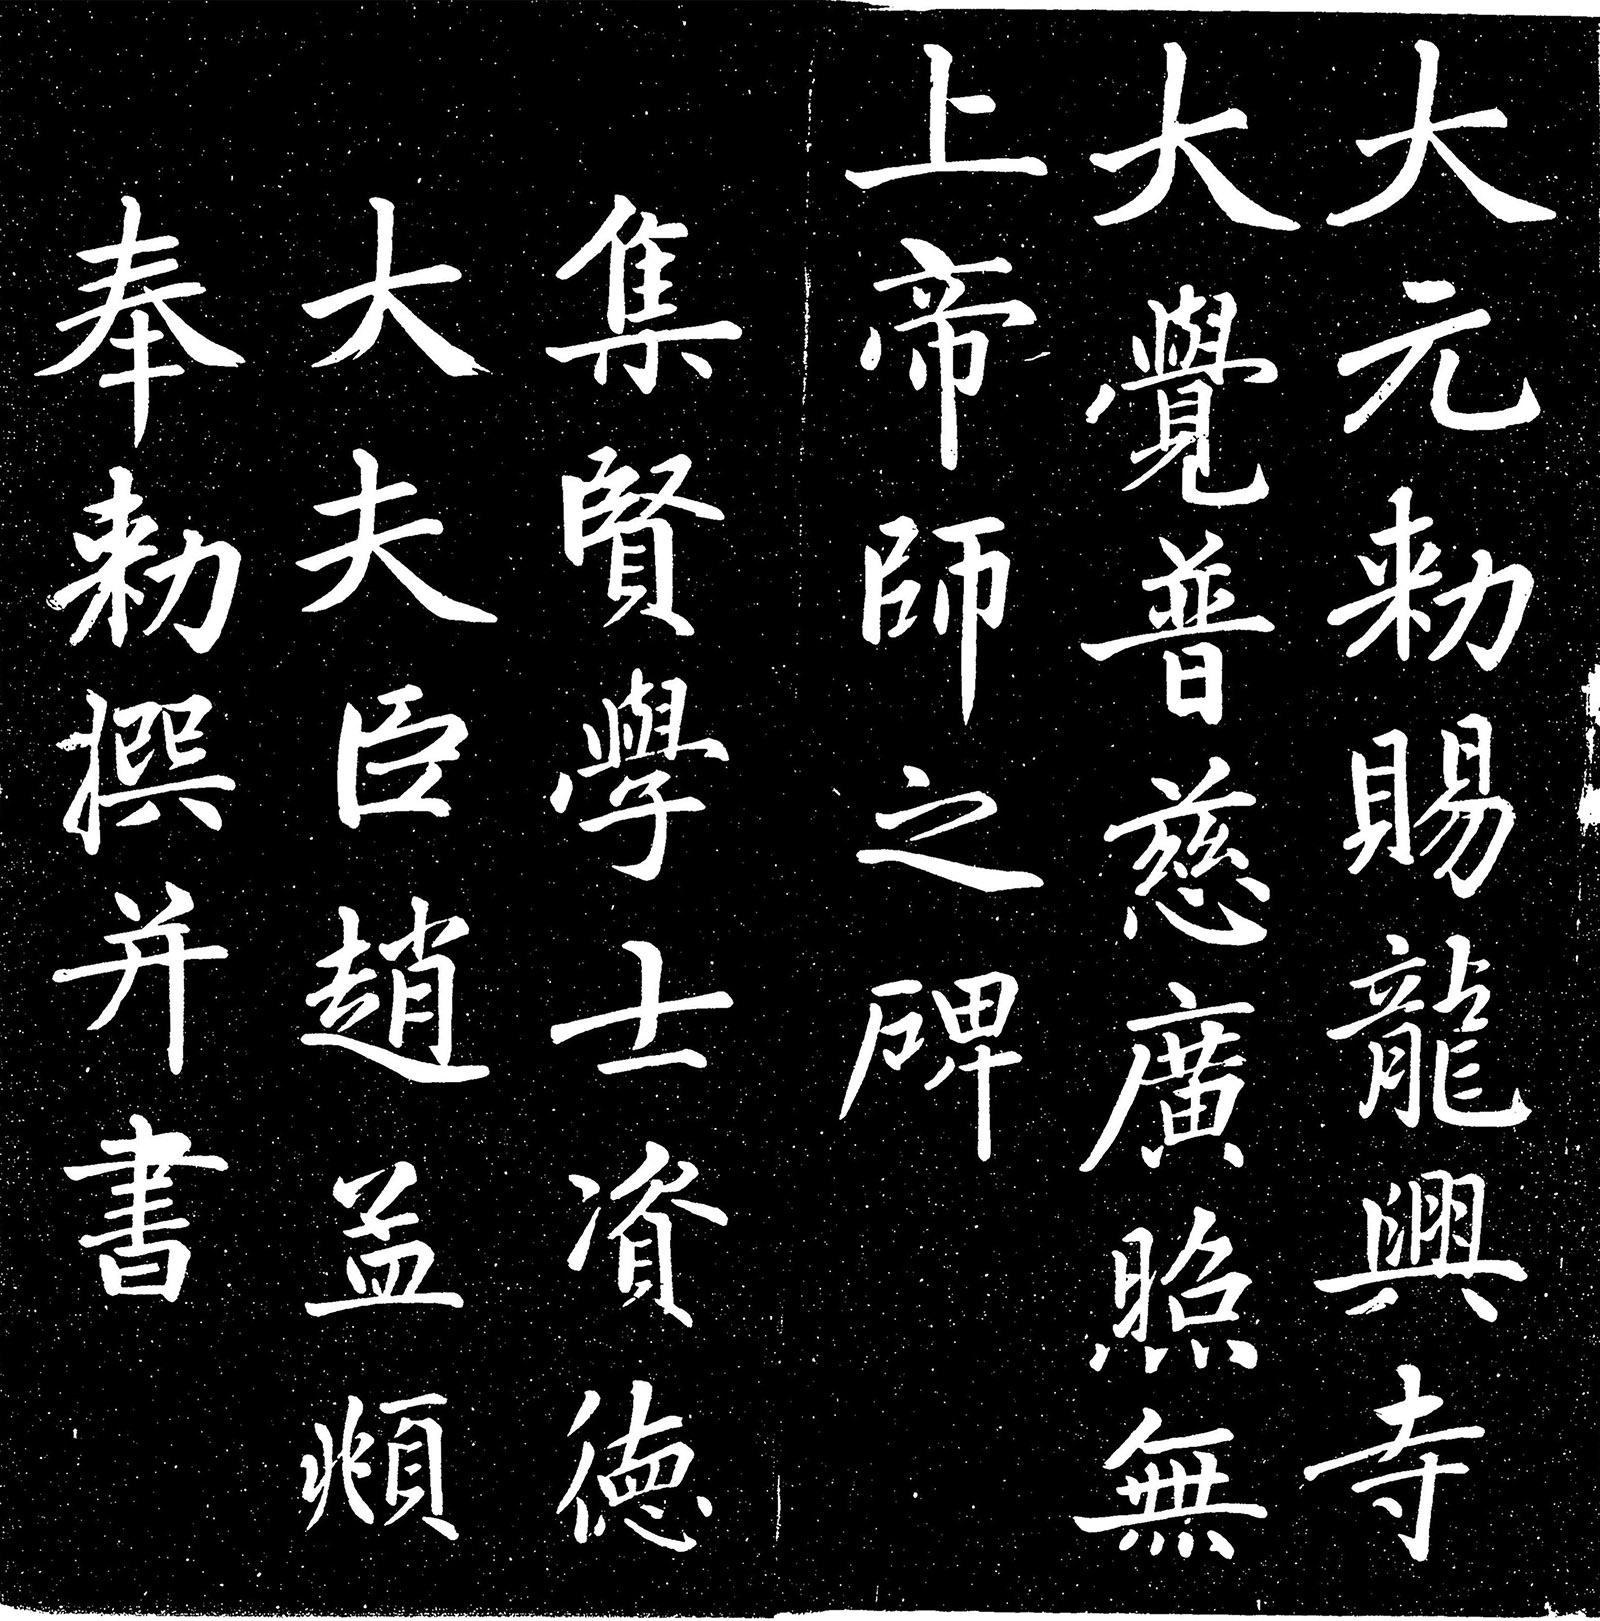 大元勅賜龍興寺
大覺普慈廣照無
上帝師之碑
集賢學士資德
大夫臣趙孟頫
奉勅撰并書